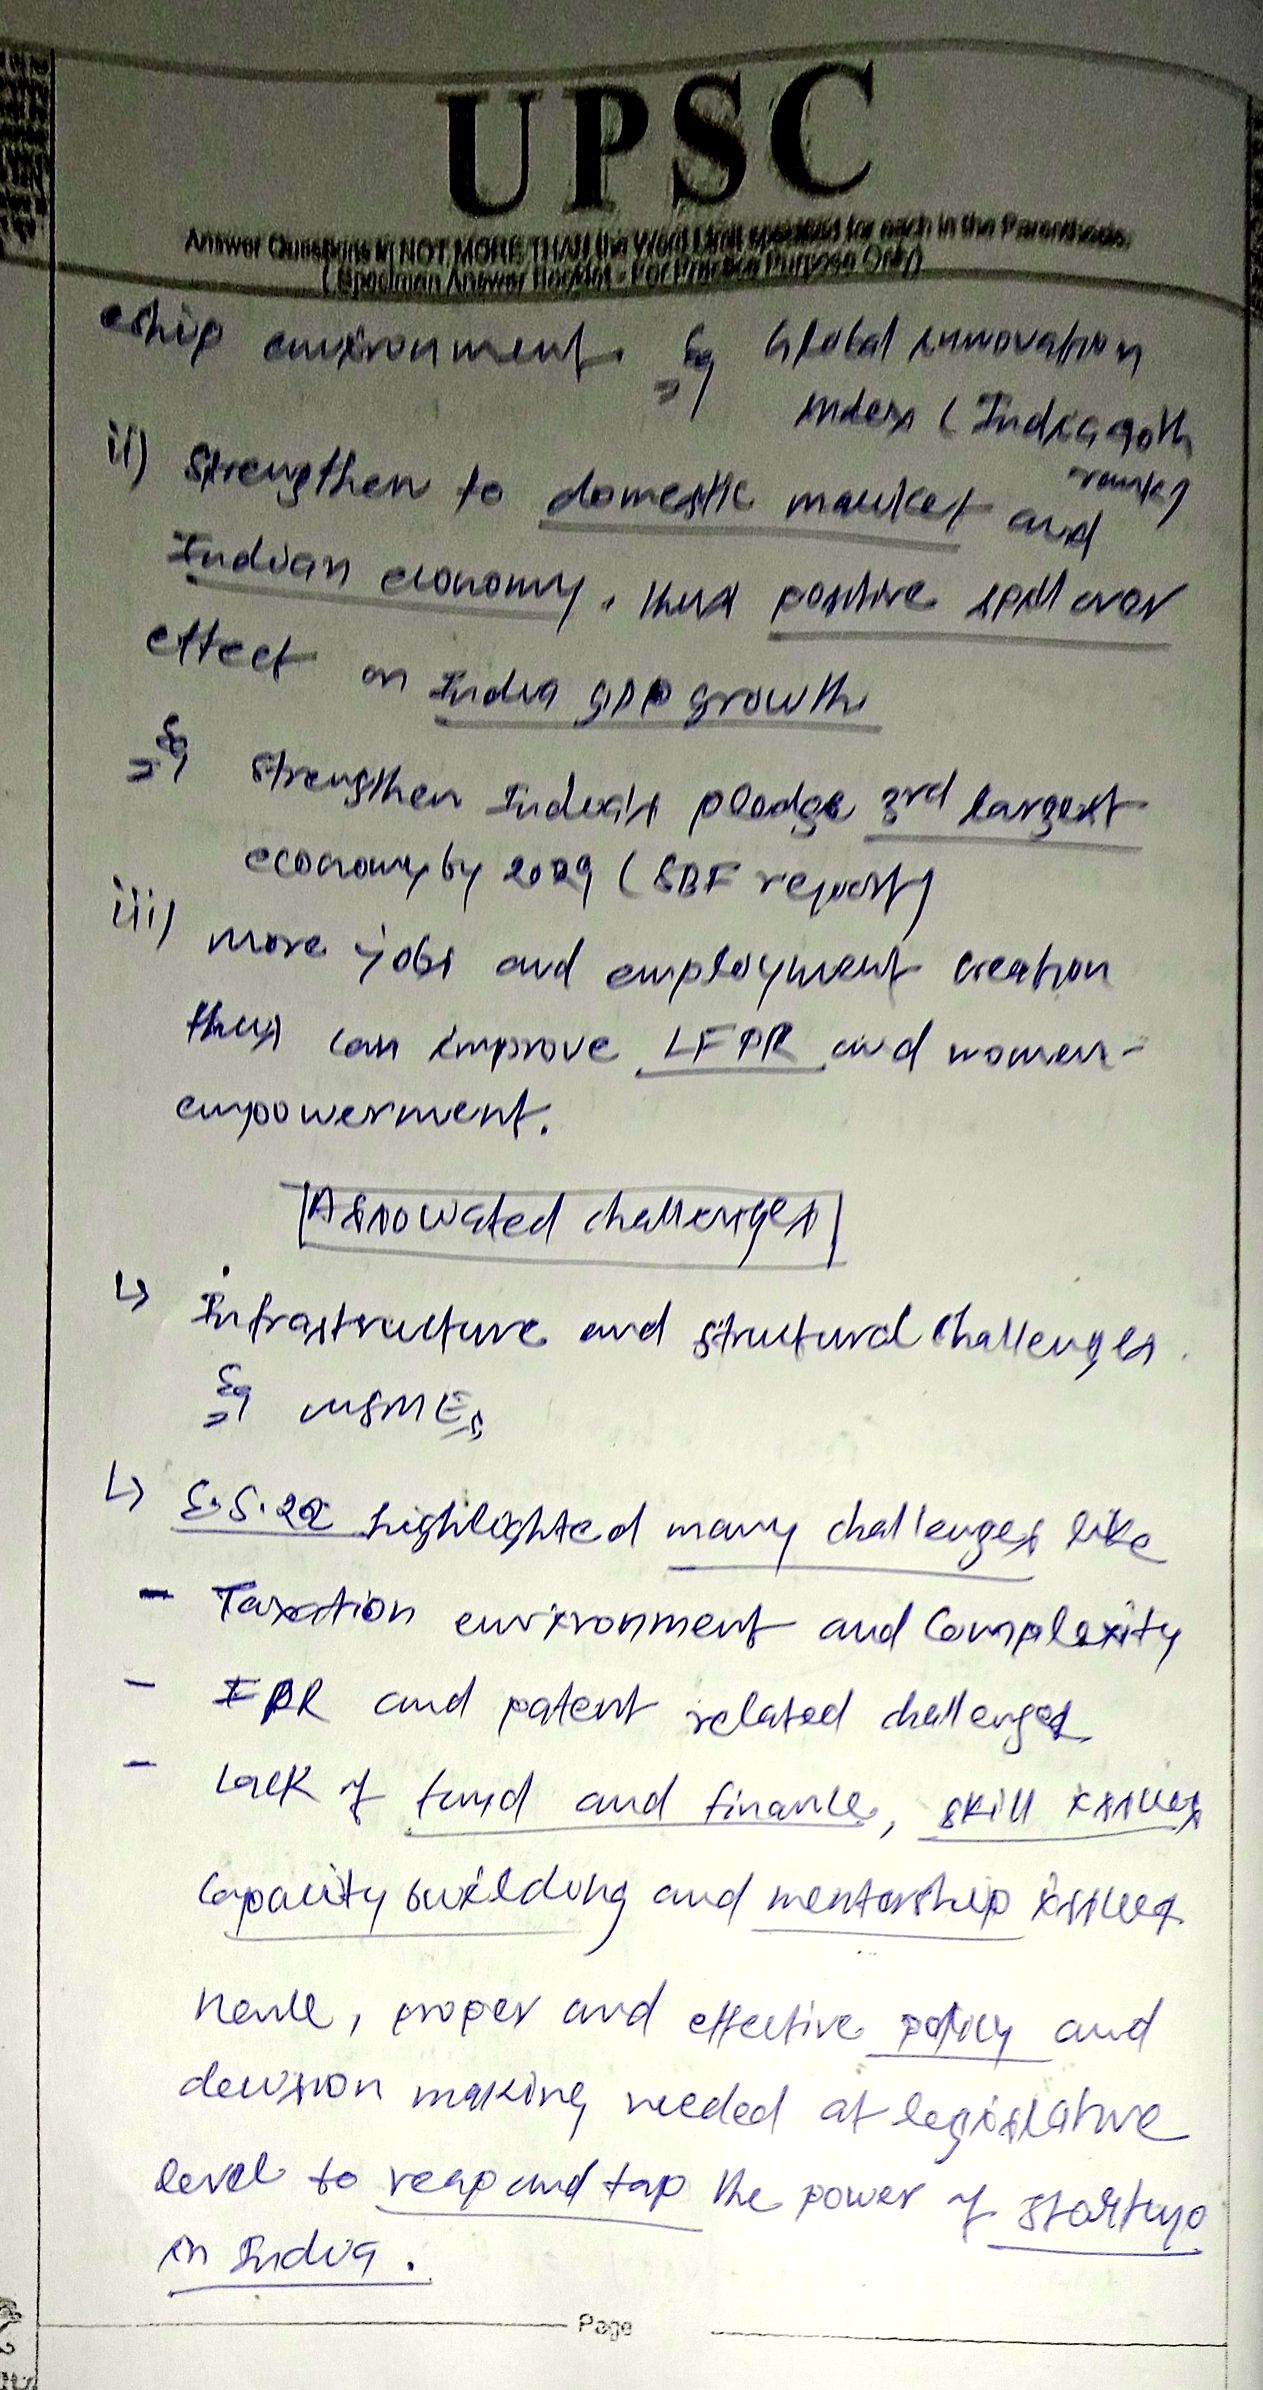 UPSC
Answer Questions in NOT MORE THAN the Word Limit specified for each in the Parenthesis.
(Specimen Answer Booklet - For Practice Purpose Only)
eship environment. Eg Global innovation
index (India 40th
rank)
ii) Strengthen to domestic market and
Indian economy. thus positive spill over
effect on India GDP growth
Eg strengthen India's pledge 3rd largest
economy by 2029 (SBI report)
iii) more jobs and employment creation
thus can improve LFPR and women-
empowerment.
Associated challenges
↳ Infrastructure and structural challenges.
Eg MSMEs
↳ E.S. 22 highlighted many challenges like
- Taxation environment and Complexity
- IPR and patent related challenges
- Lack of fund and finance, skill issues
capacity building and mentorship issues
Hence, proper and effective policy and
decision making needed at legislative
level to reap and tap the power of startup
in India.
Page